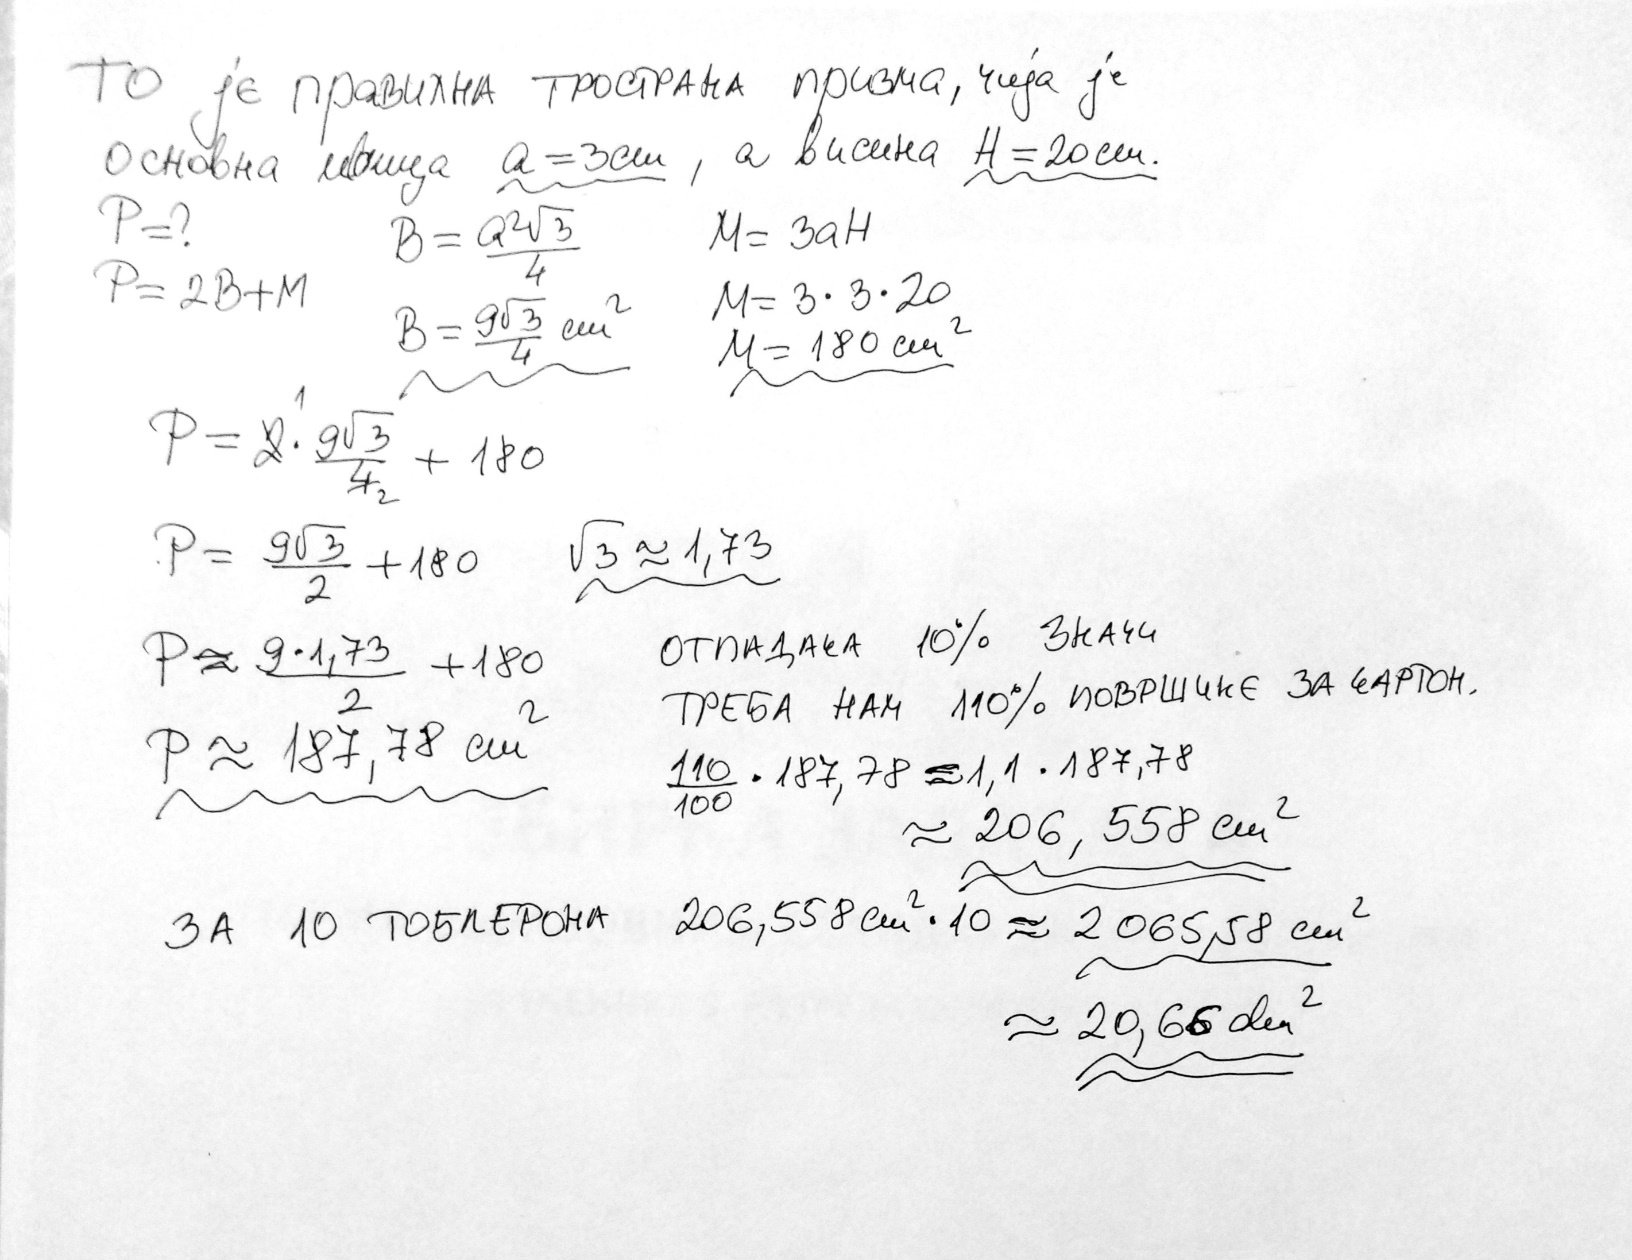 То је правилна тространа призма, чија је
основна ивица a = 3cm, а висина H = 20cm.
P = ? B = a²√3/4 M = 3aH
P = 2B + M B = 9√3/4 cm² M = 3 · 3 · 20
M = 180 cm²
P = 2¹ · 9√3/4₂ + 180
P = 9√3/2 + 180 √3 ≈ 1,73
P ≈ 9·1,73/2 + 180 ОТПАДАКА 10% ЗНАЧИ
ТРЕБА НАМ 110% ПОВРШИНЕ ЗА КАРТОН.
P ≈ 187,78 cm² 110/100 · 187,78 ≈ 1,1 · 187,78
≈ 206,558 cm²
ЗА 10 ТОБЛЕРОНА 206,558 cm² · 10 ≈ 2065,58 cm²
≈ 20,66 dm²